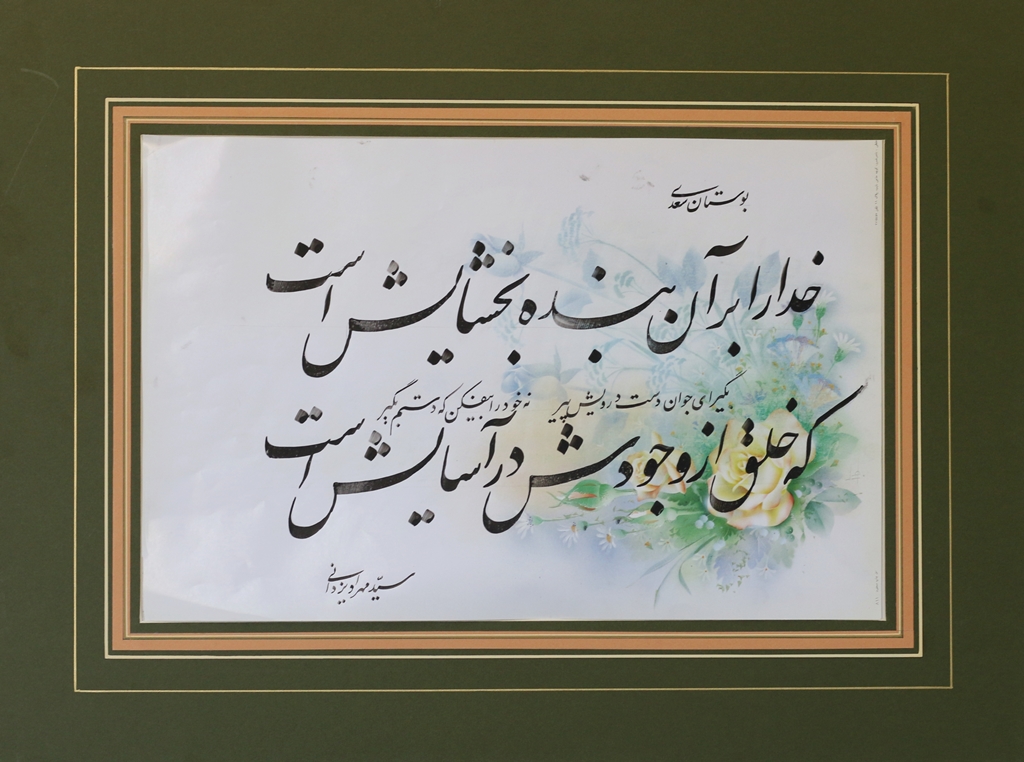 بوستان سعدی
خدا را بر آن بنده بخشایش است
بگیر ای جوان دست درویش پیر نه خود را بیفکن که دستم بگیر
که خلق از وجودش در آسایش است
سیّد مهراد یزدانی